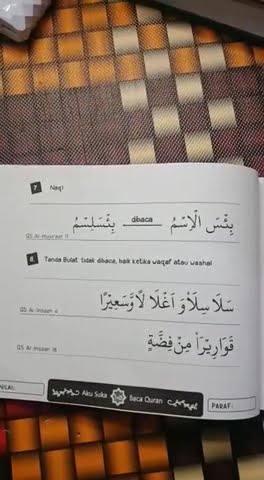 7 Naql
بِئْسَ الْاِسْمُ dibaca بِئْسَلِسْمُ
QS Al-Hujurat 11
8 Tanda Bulat: tidak dibaca, baik ketika waqaf atau washal
سَلَاسِلَا۟ وَ اَغْلَا لًا وَّسَعِيْرًا
QS Al-Insan 4
قَوَارِيْرَا۟ مِنْ فِضَّةٍ
QS Al-Insan 16
NILAI:
Aku Suka Baca Quran
PARAF: